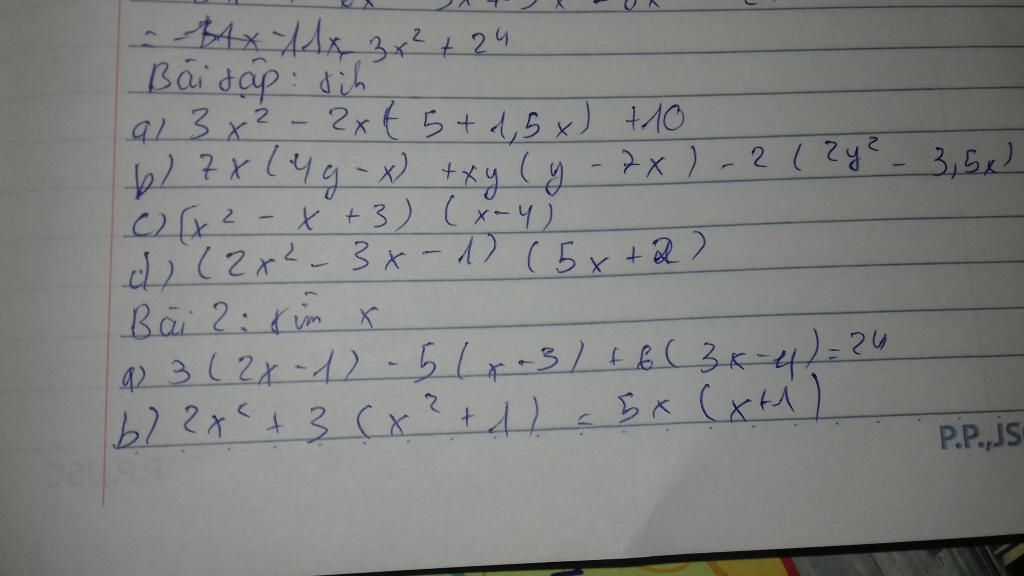 = -11x - 3x² + 24
Bài tập: tính
a) 3x² - 2x( 5 + 1,5x) +10
b) 7x (4y - x) + xy ( y - 7x ) - 2 ( 2y² - 3,5x)
c) (x² - x + 3) (x-4)
d) (2x² - 3x - 1) (5x + 2)
Bài 2: tìm x
a) 3 (2x - 1) - 5 (x - 3) + 6 ( 3x - 4) = 24
b) 2x² + 3 (x² + 1) = 5x (x+1)
P.P.,JS